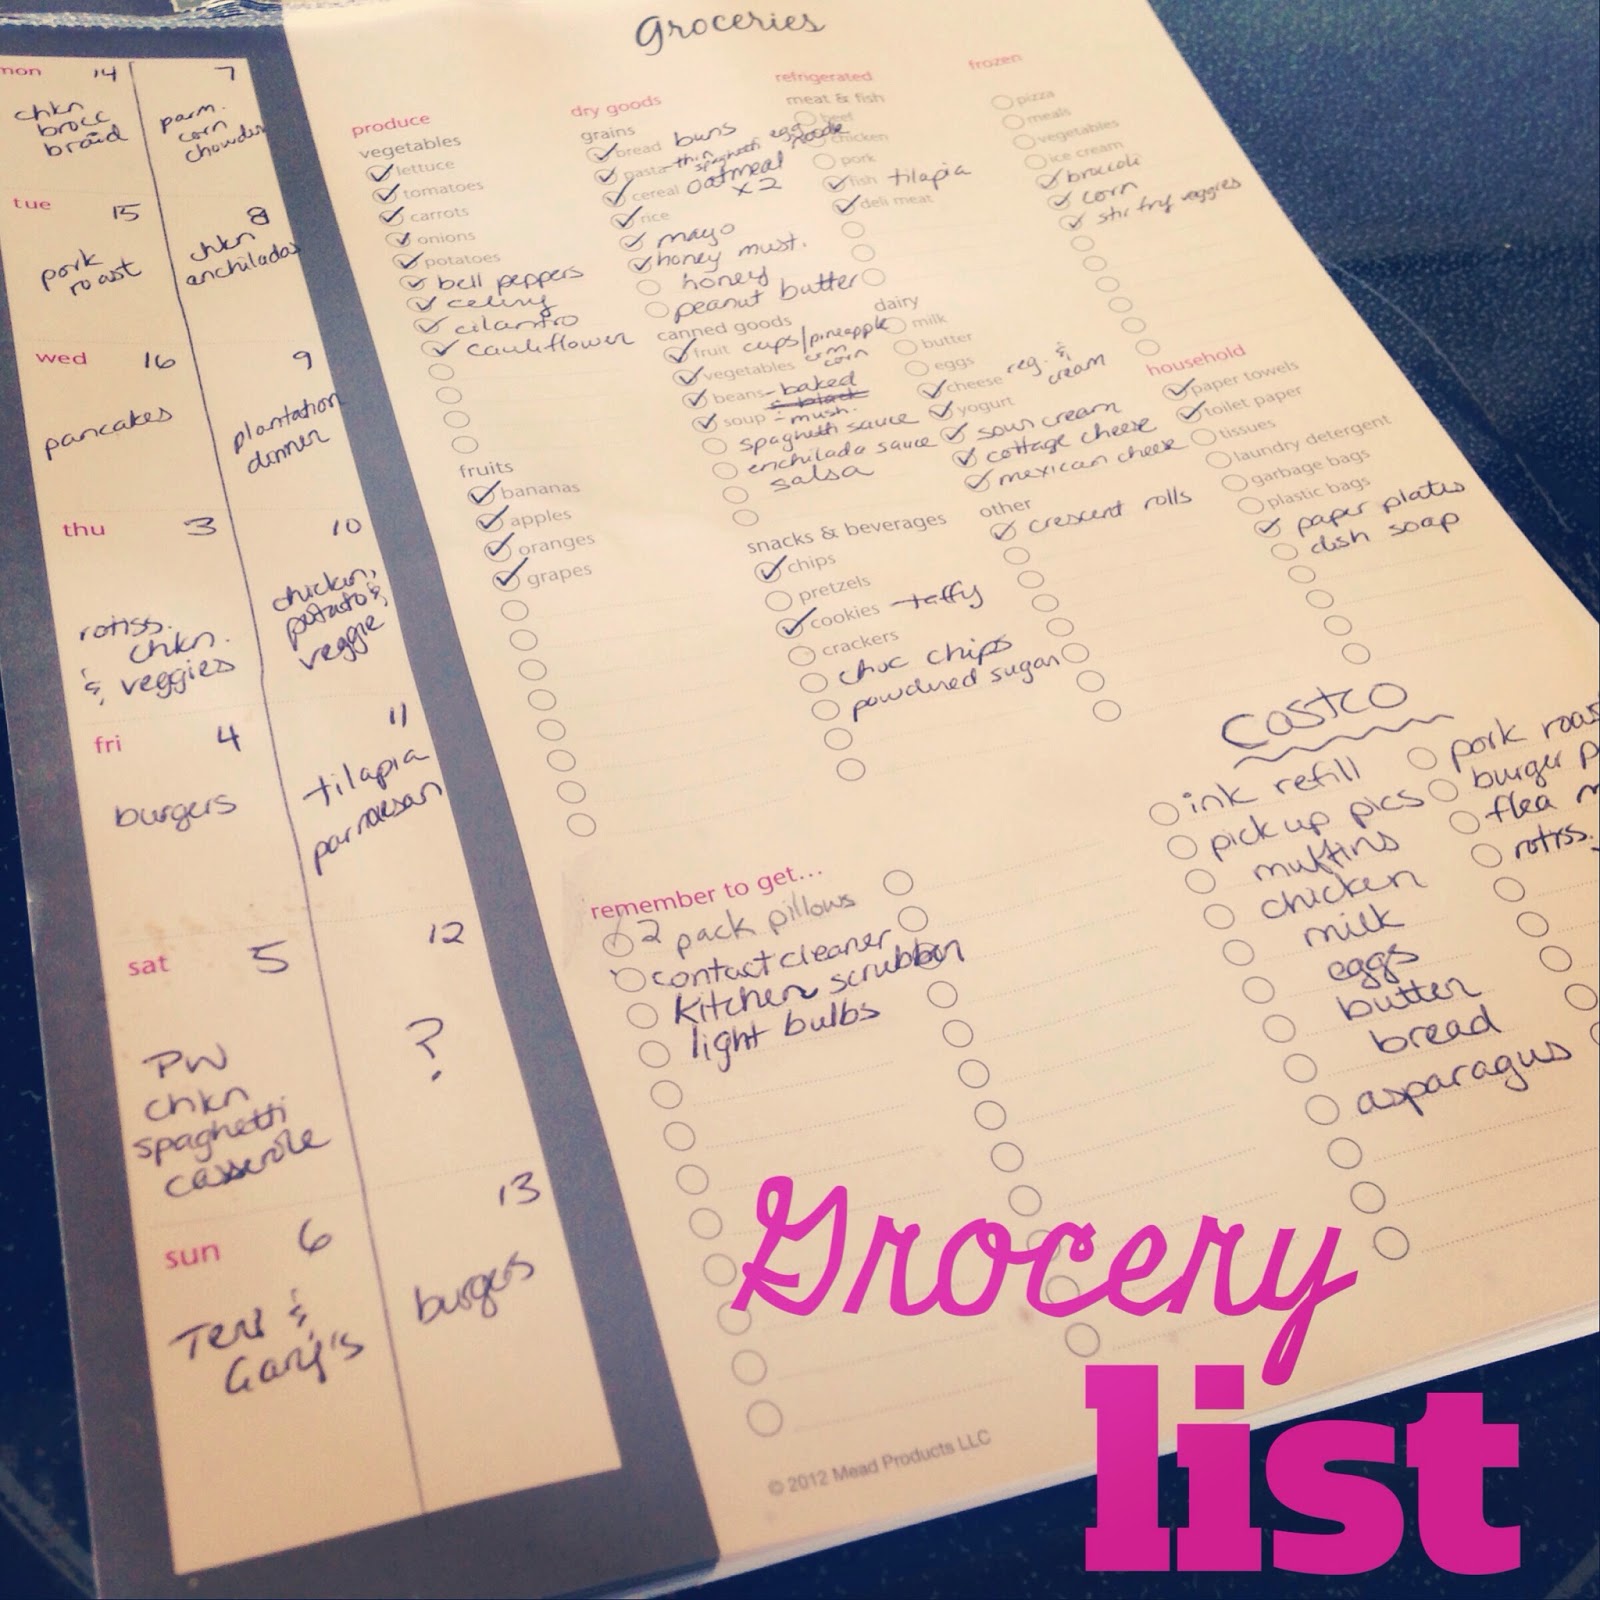 Groceries
mon 14 7
chkn
brocc
braid
parm.
corn
chowder
tue 15 8
pork
roast
chkn
enchiladas
wed 16 9
pancakes
plantation
dinner
thu 3 10
rotiss.
chkn.
& veggies
chicken,
potato's,
veggie
fri 4 11
burgers
tilapia
parmesan
sat 5 12
PW
chkn
spaghetti
casserole
?
sun 6 13
Teri &
Gary's
burgers
produce
vegetables
lettuce
tomatoes
carrots
onions
potatoes
bell peppers
celery
cilantro
cauliflower
fruits
bananas
apples
oranges
grapes
dry goods
grains
bread buns
pasta - thin spaghetti egg noodle
cereal oatmeal x 2
rice
mayo
honey must.
honey
peanut butter
canned goods
fruit cups/pineapple
vegetables corn
beans - baked
& black
soup - mush.
spaghetti sauce
enchilada sauce
salsa
snacks & beverages
chips
pretzels
cookies taffy
crackers
choc chips
powdered sugar
refrigerated
meat & fish
beef
chicken
pork
fish tilapia
deli meat
dairy
milk
butter
eggs
cheese reg. & cream
yogurt
sour cream
cottage cheese
mexican cheese
other
crescent rolls
frozen
pizza
meals
vegetables
ice cream
broccoli
corn
stir fry veggies
household
paper towels
toilet paper
tissues
laundry detergent
garbage bags
plastic bags
paper plates
dish soap
remember to get...
2 pack pillows
contact cleaner
kitchen scrubber
light bulbs
Costco
ink refill
pick up pics
muffins
chicken
milk
eggs
butter
bread
asparagus
pork roas
burger p
flea m
rotiss.
© 2012 Mead Products LLC
Grocery
list